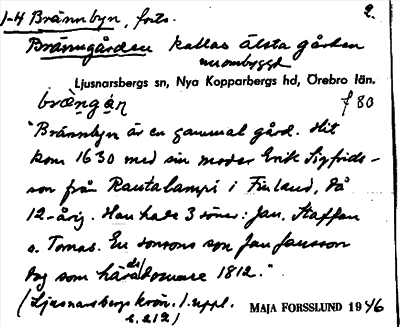 1-4 Brännbyn, forts. 2.
Bränngården kallas älsta gården
numbyggd
Ljusnarsbergs sn, Nya Kopparbergs hd, Örebro län.
bræ̀ngán f 80
"Brännbyn är en gammal gård. Hit
kom 1630 med sin moder Erik Sigfrids-
son från Rautalampi i Finland, då
12-årig. Han hade 3 söner: Jan, Staffan
o. Tomas. En sonsons son Jan Jansson
dog som häradsdomare 1812."
(Ljusnarsbergs krön. 1. uppl.
s. 212) MAJA FORSSLUND 1946